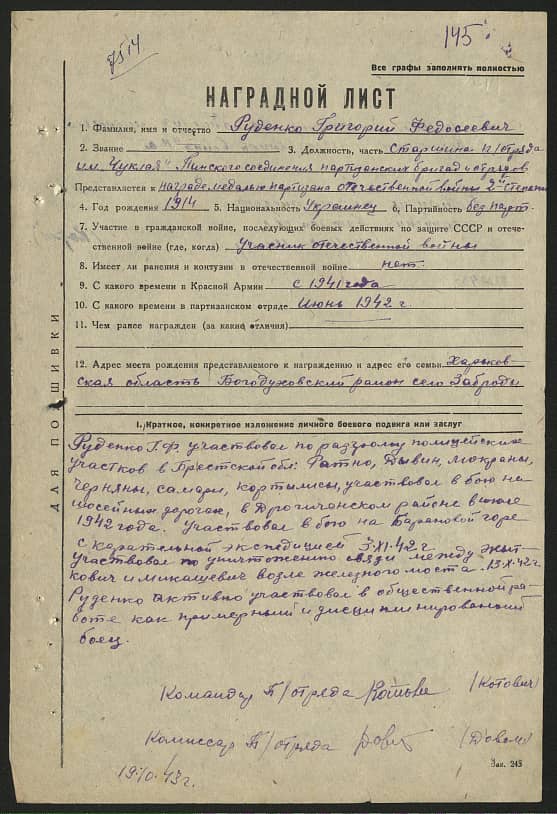 7514
145
Все графы заполнять полностью
НАГРАДНОЙ ЛИСТ
1. Фамилия, имя и отчество Руденко Григорий Федосеевич
2. Звание 3. Должность, часть Старшина п/отряда
им. Чуклая" Пинского соединения партизанских бригад и отрядов
Представляется к награде медалью партизана отечественной войны 2й степени
4. Год рождения 1914 5. Национальность Украинец 6. Партийность без парт.
7. Участие в гражданской войне, последующих боевых действиях по защите СССР и отече-
ственной войне (где, когда) участник отечественной войны
8. Имеет ли ранения и контузии в отечественной войне нет.
9. С какого времени в Красной Армии с 1941 года
10. С какого времени в партизанском отряде Июнь 1942 г.
11. Чем ранее награжден (за какие отличия)
12. Адрес места рождения представляемого к награждению и адрес его семьи Харьков-
ская область Богодуховский район село Заброды
ДЛЯ ПОДШИВКИ
1. Краткое, конкретное изложение личного боевого подвига или заслуг
Руденко Г.Ф. участвовал по разгрому полицейских
участков в Брестской обл: Ратно, Дывин, мокраны,
черняны, самары, кортылисы, участвовал в бою на
шосейных дорогах, в Дрогичанском районе в июле
1942 года. Участвовал в бою на Барановой горе
с карательной экспедицией 3.XI.42 г.
участвовал по уничтожению связи между Жит-
кович и микашевич возле железного моста. 13.X.42 г
Руденко активно участвовал в общественной ра-
боте как примерный и дисциплинированый
боец.
Командир П/отряда (Котович)
Комиссар П/отряда
19.10.43 г.
Зак. 245